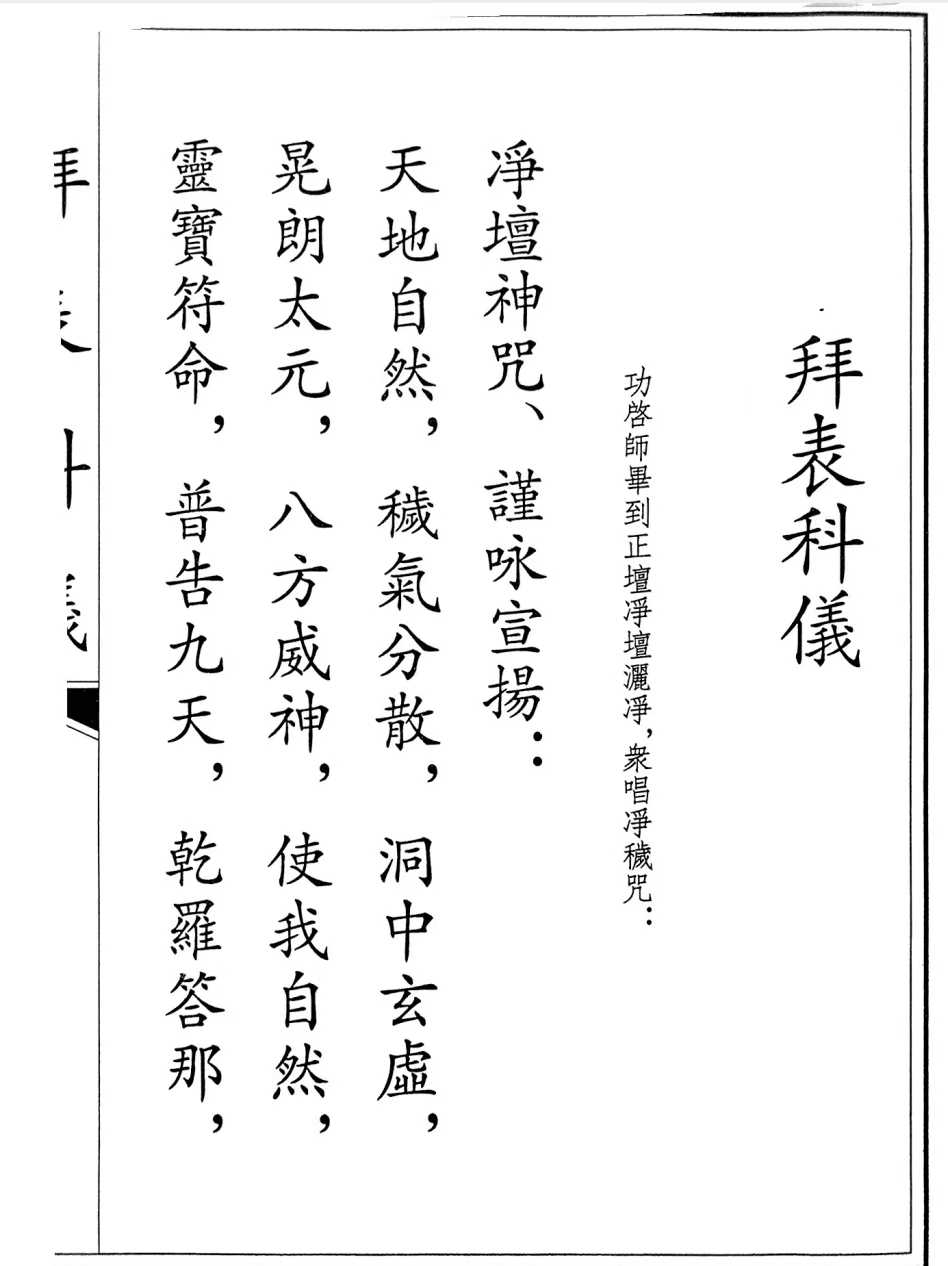 拜表科儀
功啓師畢到正壇淨壇灑淨，衆唱淨穢咒：
淨壇神咒、謹咏宣揚：
天地自然，穢氣分散，洞中玄虛，
晃朗太元，八方威神，使我自然，
靈寶符命，普告九天，乾羅答那，
拜表科儀